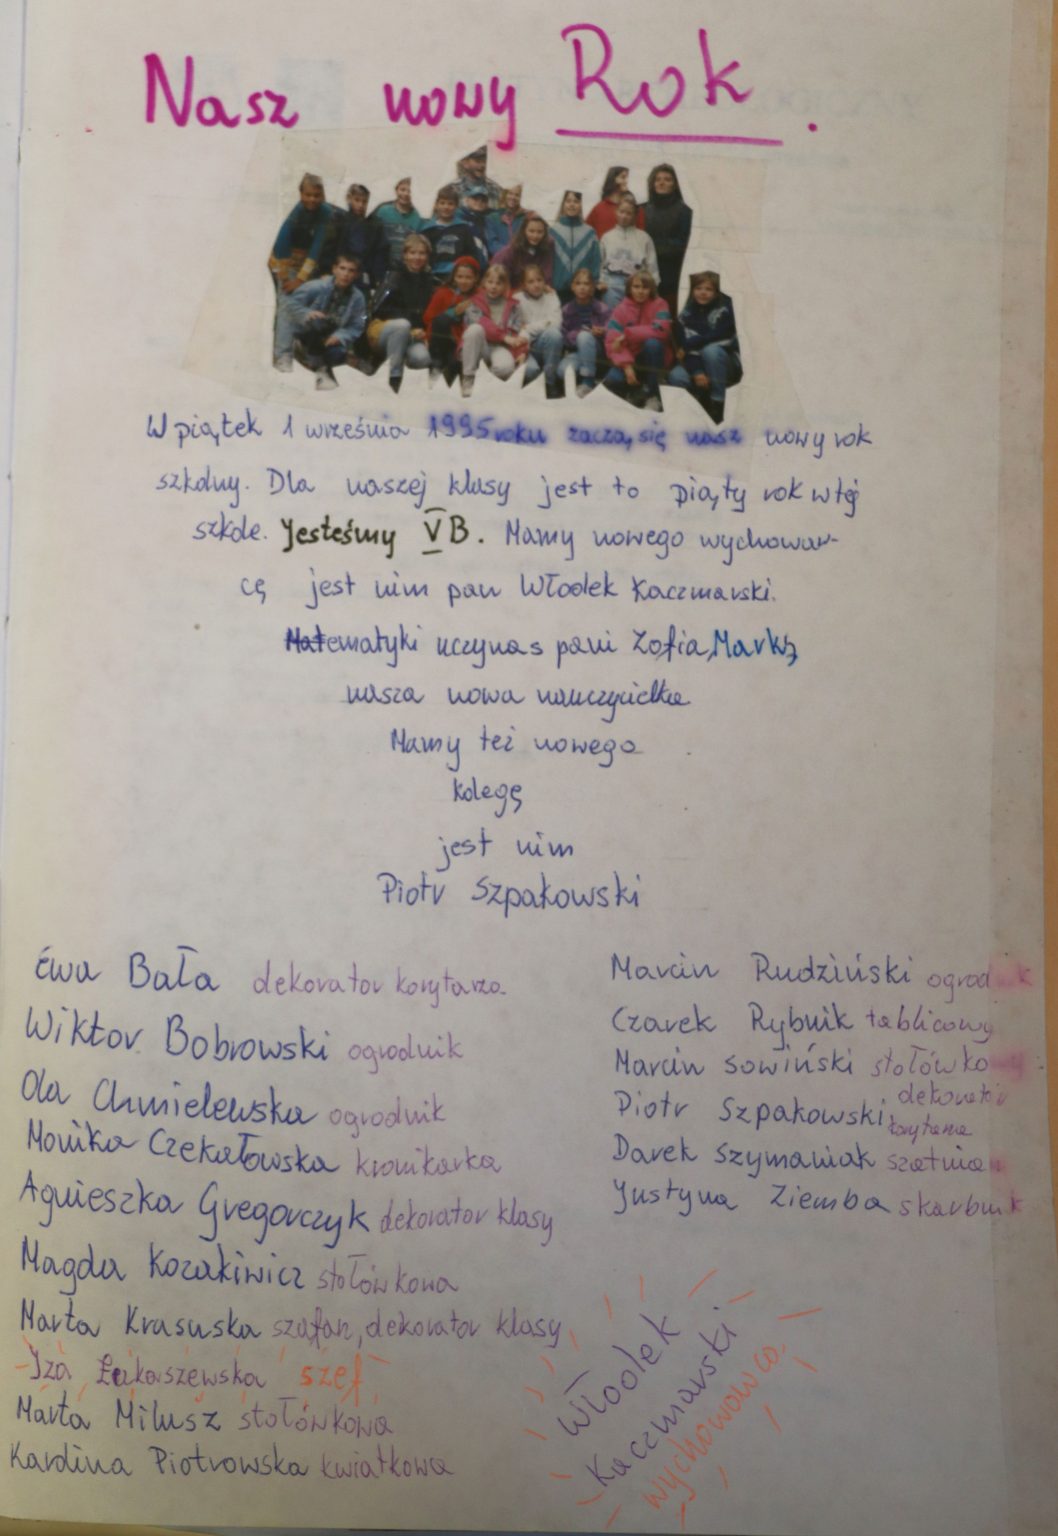 Nasz nowy Rok.
W piątek 1 września 1995 roku zaczą się nasz nowy rok
szkolny. Dla naszej klasy jest to piąty rok w tej
szkole. Jesteśmy V B. Mamy nowego wychowaw-
cę jest nim pan Włodek Kaczmarski.
Matematyki uczy nas pani Zofia Marks
nasza nowa nauczycielka
Mamy też nowego
kolegę
jest nim
Piotr Szpakowski
Ewa Bała dekorator korytarza
Wiktor Bobrowski ogrodnik
Ola Chmielewska ogrodnik
Monika Czekałowska kronikarka
Agnieszka Gregorczyk dekorator klasy
Magda Kozakiwicz stołówkowa
Marta Krasuska dekorator klasy
Iza Łukaszewska szef
Marta Milusz stołówkowa
Karolina Piotrowska kwiatkowa
Marcin Rudziński ogrodnik
Czarek Rybnik tablicowy
Marcin Sowiński stołówkowy
Piotr Szpakowski dekorator
korytarza
Darek Szymaniak szatniarz
Justyna Ziemba skarbnik
Włodek
Kaczmarski
wychowawca